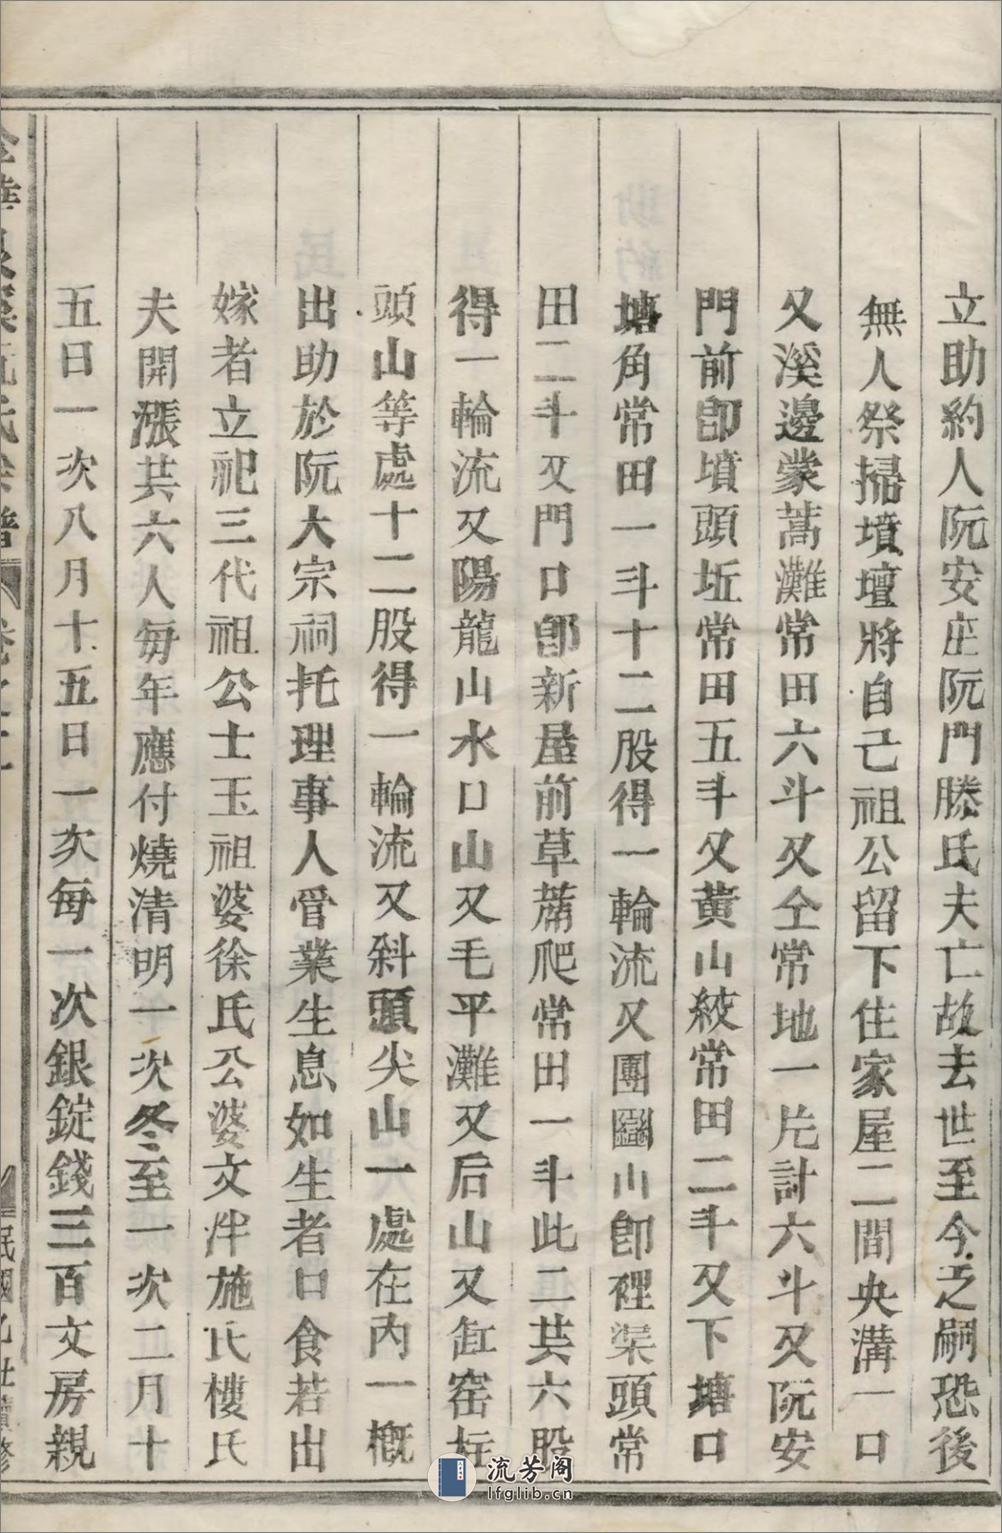 立助約人阮安庄阮門滕氏夫亡故去世至今乏嗣恐後
無人祭掃墳壇將自己祖公留下住家屋二間央溝一口
又溪邊蒙蒿灘常田六斗又仝常地一片計六斗又阮安
門前卽墳頭坵常田五斗又黃山紴常田二斗又下塘口
塘角常田一斗十二股得一輪流又團圝山卽裡渠頭常
田二斗又門口卽新屋前草蓆爬常田一斗此二共六股
得一輪流又陽龍山水口山又毛平灘又后山又缸窑
頭山等處十二股得一輪流又斜頭尖山一處在內一概
出助於阮大宗祠托理事人管業生息如生者口食若出
嫁者立祀三代祖公士玉祖婆徐氏公婆文泮施氏樓氏
夫開漲共六人每年應付燒清明一次冬至一次二月十
五日一次八月十五日一次每一次銀錠錢三百文房親
阮氏宗譜
民國乙丑續修
流芳阁
lfglib.cn